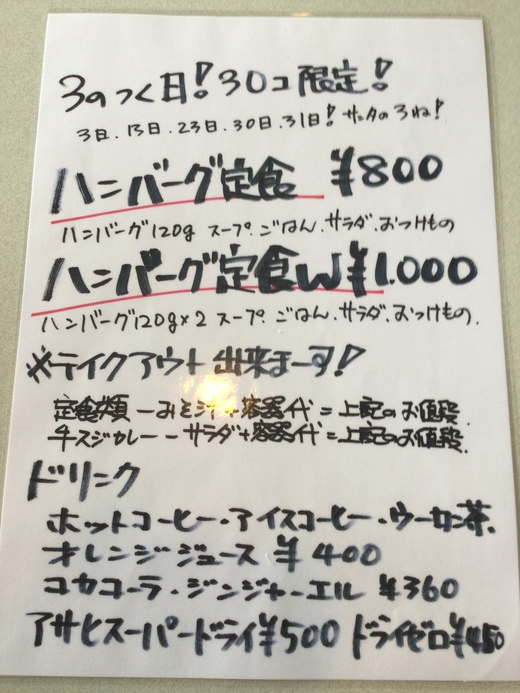 3のつく日！30コ限定！
3日.13日.23日.30日.31日！サンタの3ね！
ハンバーグ定食 ¥800
ハンバーグ120g スープ.ごはん.サラダ.おつけもの
ハンバーグ定食W¥1.000
ハンバーグ120g×2 スープ.ごはん.サラダ.おつけもの.
※テイクアウト出来まーす！
定食類－みそ汁＋容器代＝上記のお値段.
牛スジカレー－サラダ＋容器代＝上記のお値段.
ドリンク
ホットコーヒー・アイスコーヒー・ウーロン茶.
オレンジジュース ¥400
コカコーラ・ジンジャーエル ¥360
アサヒスーパードライ¥500 ドライゼロ¥450